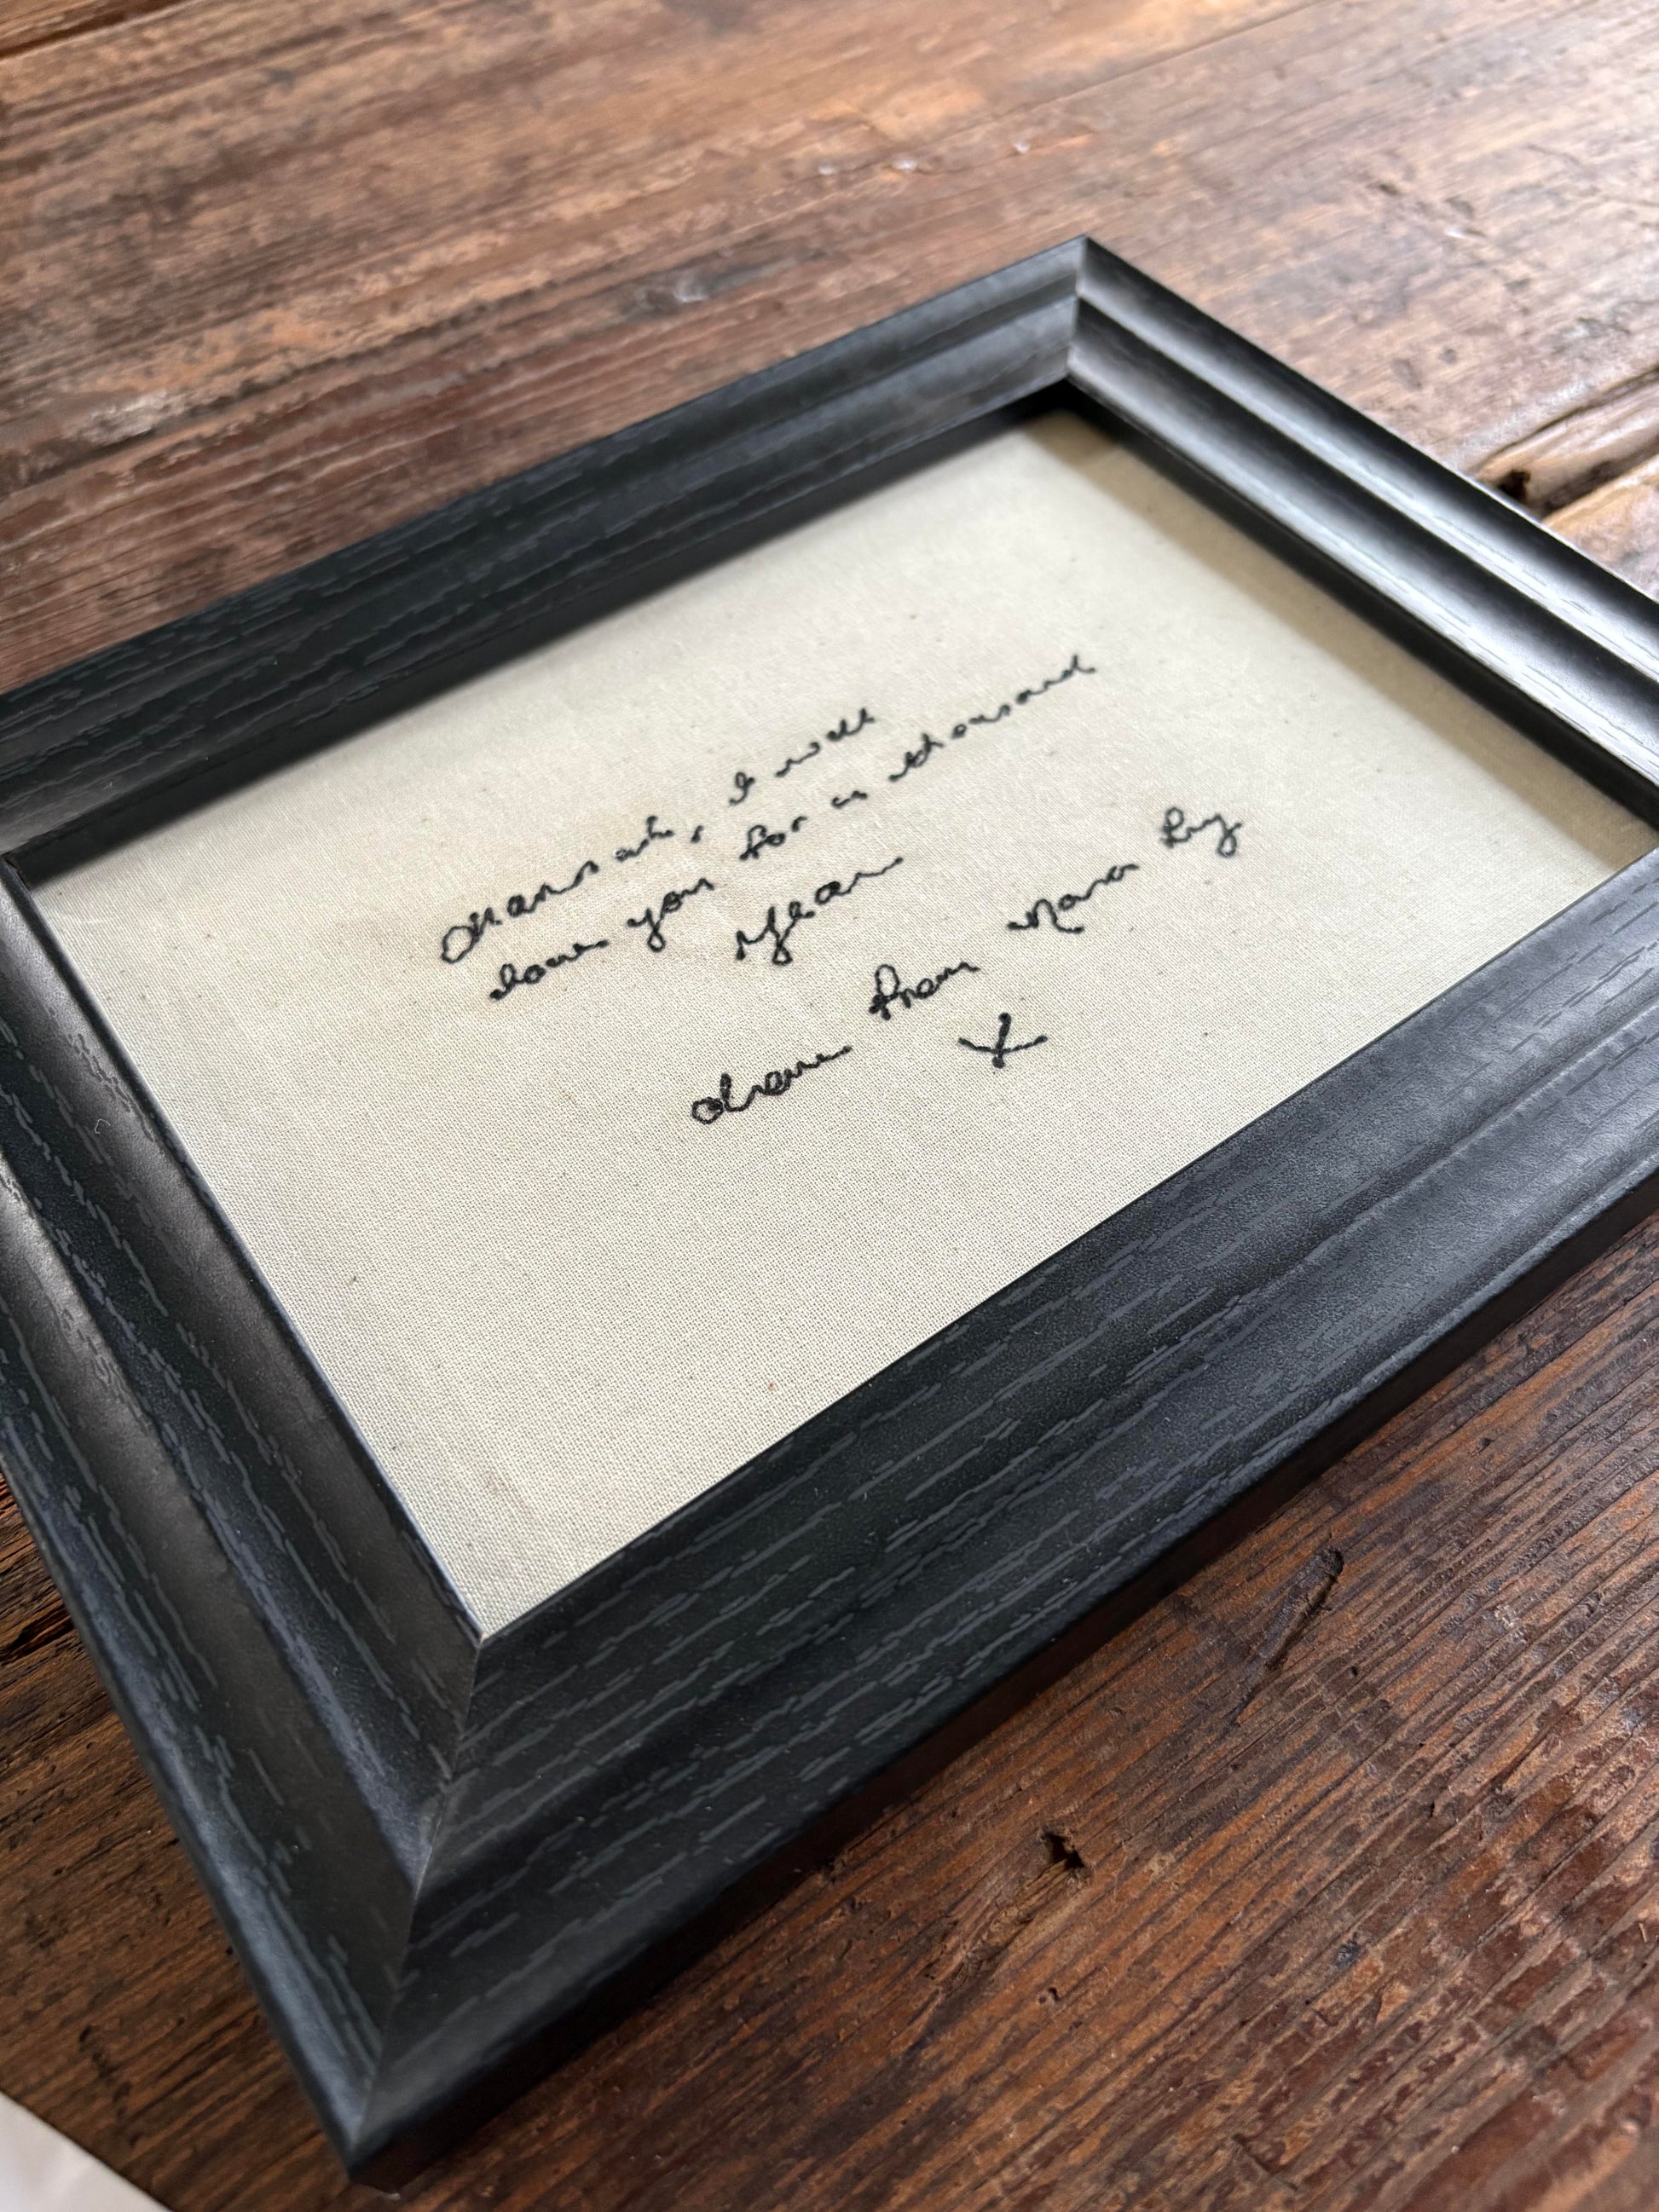 Hannah, I will
love you for a thousand
years
love from Nana Ky
X